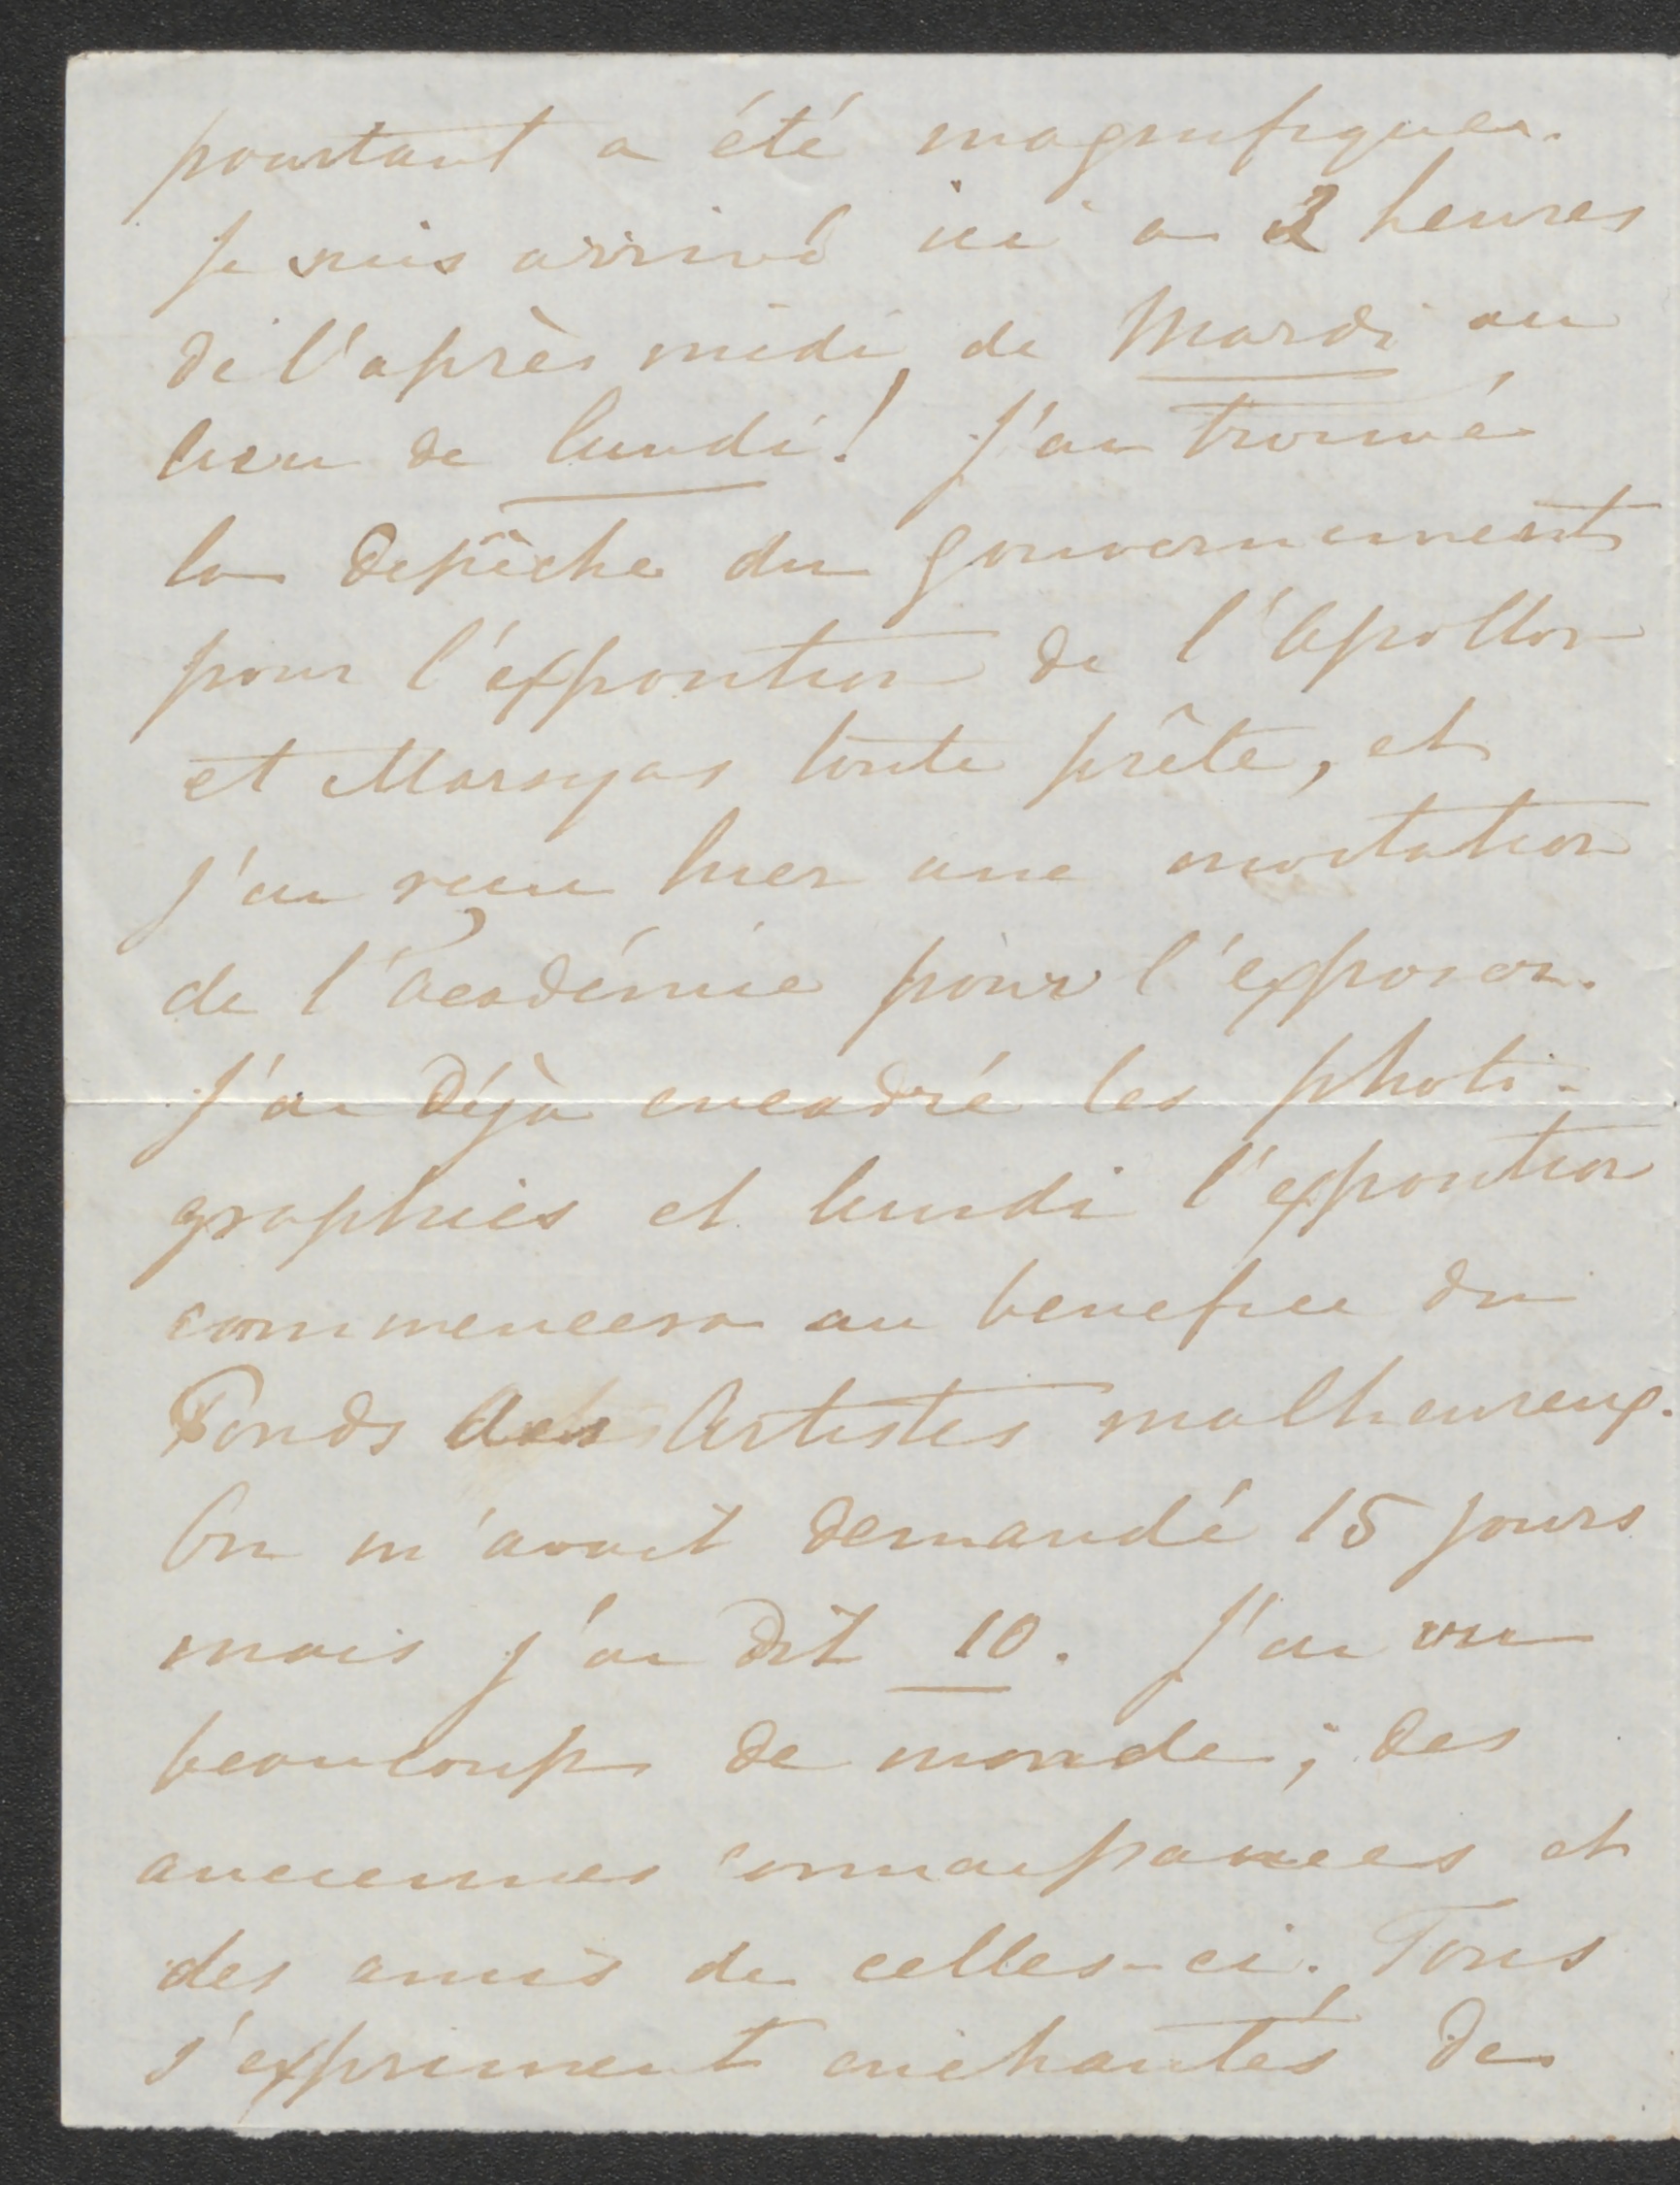 pourtant a été magnifique.
Je suis arrivé ici a 3 heures
de l'après midi de Mardi au
lieu de lundi! J'ai trouvé
la depêche du gouvernement
pour l'exposition de l'Apollon
et Marsyas toute prête, et
j'ai reçu hier une invitation
de l'Académie pour l'exposer.
J'ai déjà encadré les photo-
graphies et lundi l'exposition
commencera au benefice du
Fonds des Artistes malheureux.
On m'avait demandé 15 jours
mais j'ai dit 10. J'ai vu
beaucoup de monde; des
anciennes connaissances et
des amis de celles-ci. Tous
s'expriment enchantés de